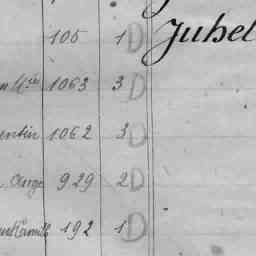 105 1 D Juhel
1063 3 D
entin 1062 3 D
Ange 929 2 D
192 1 D